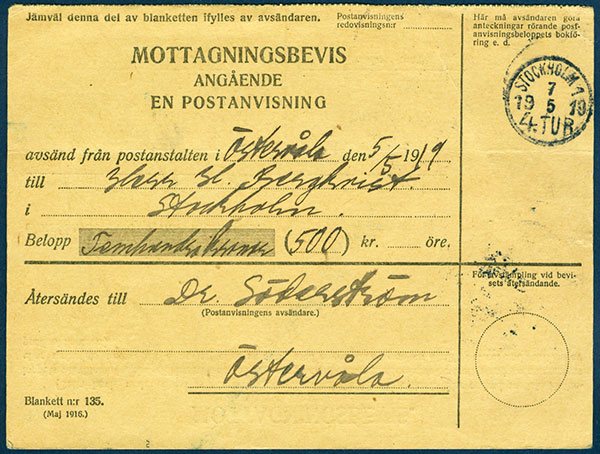 Jämväl denna del av blanketten ifylles av avsändaren.
Postanvisningens
redovisningsnr:
Här må avsändaren göra
anteckningar rörande post-
anvisningsbeloppets bokfö-
ring e. d.
MOTTAGNINGSBEVIS
ANGÅENDE
EN POSTANVISNING
STOCKHOLM 1
7
19 5 19
4.TUR.
avsänd från postanstalten i Östervåla den 5/5 1919
till Herr H. Bergkvist.
i Stockholm.
Belopp Femhundra kronor (500) kr. öre.
För avstämpling vid bevi-
sets återsändande.
Återsändes till Dr. Söderström
(Postanvisningens avsändare.)
Östervåla.
Blankett n:r 135.
(Maj 1916.)
2